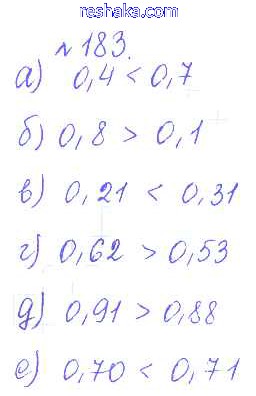 reshaka.com
№183.
а) 0,4 < 0,7
б) 0,8 > 0,1
в) 0,21 < 0,31
г) 0,62 > 0,53
д) 0,91 > 0,88
е) 0,70 < 0,71